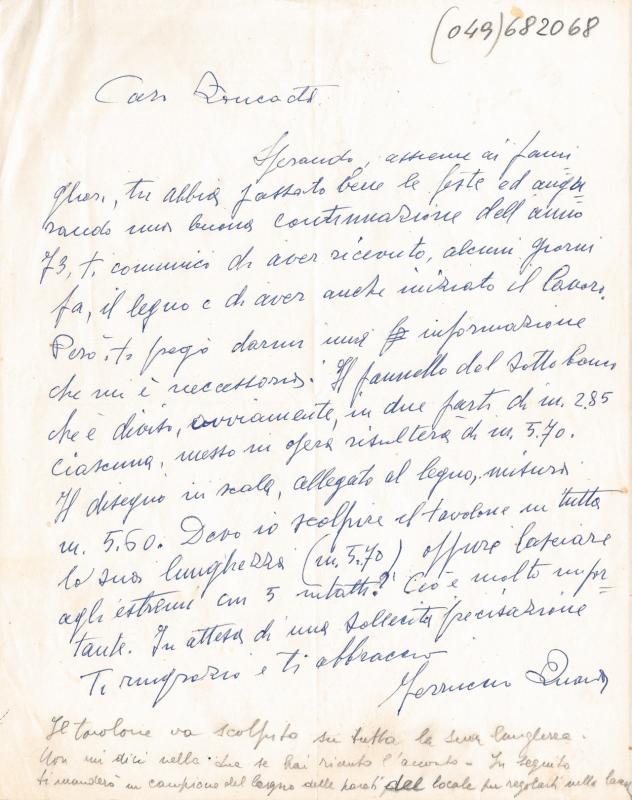 (049)682068
Caro
Sperando, assieme ai fami
gliari, tu abbia passato bene le feste ed augu
rando una buona continuazione dell'anno
73, ti comunico di aver ricevuto, alcuni giorni
fa, il legno e di aver anche iniziato il lavoro.
Però, ti prego darmi una informazione
che mi è neccessaria: Il pannello del sotto banco
che è diviso, ovviamente, in due parti di m. 2.85
ciascuna, messo in opera risulterà di m. 5.70.
Il disegno in scala, allegato al legno, misura
m. 5.60. Devo io scolpire il tavolone in tutta
la sua lunghezza (m. 5.70) oppure lasciare
agli estremi cm 5 intatti? Ciò è molto impor-
tante. In attesa di una sollecita precisazione
Ti ringrazio e ti abbraccio
Ferruccio
Il tavolone va scolpito su tutta la sua lunghezza.
Non mi dici nella tua se hai ricevuto l'acconto - In seguito
ti manderò un campione del legno delle pareti del locale per regolarti nella